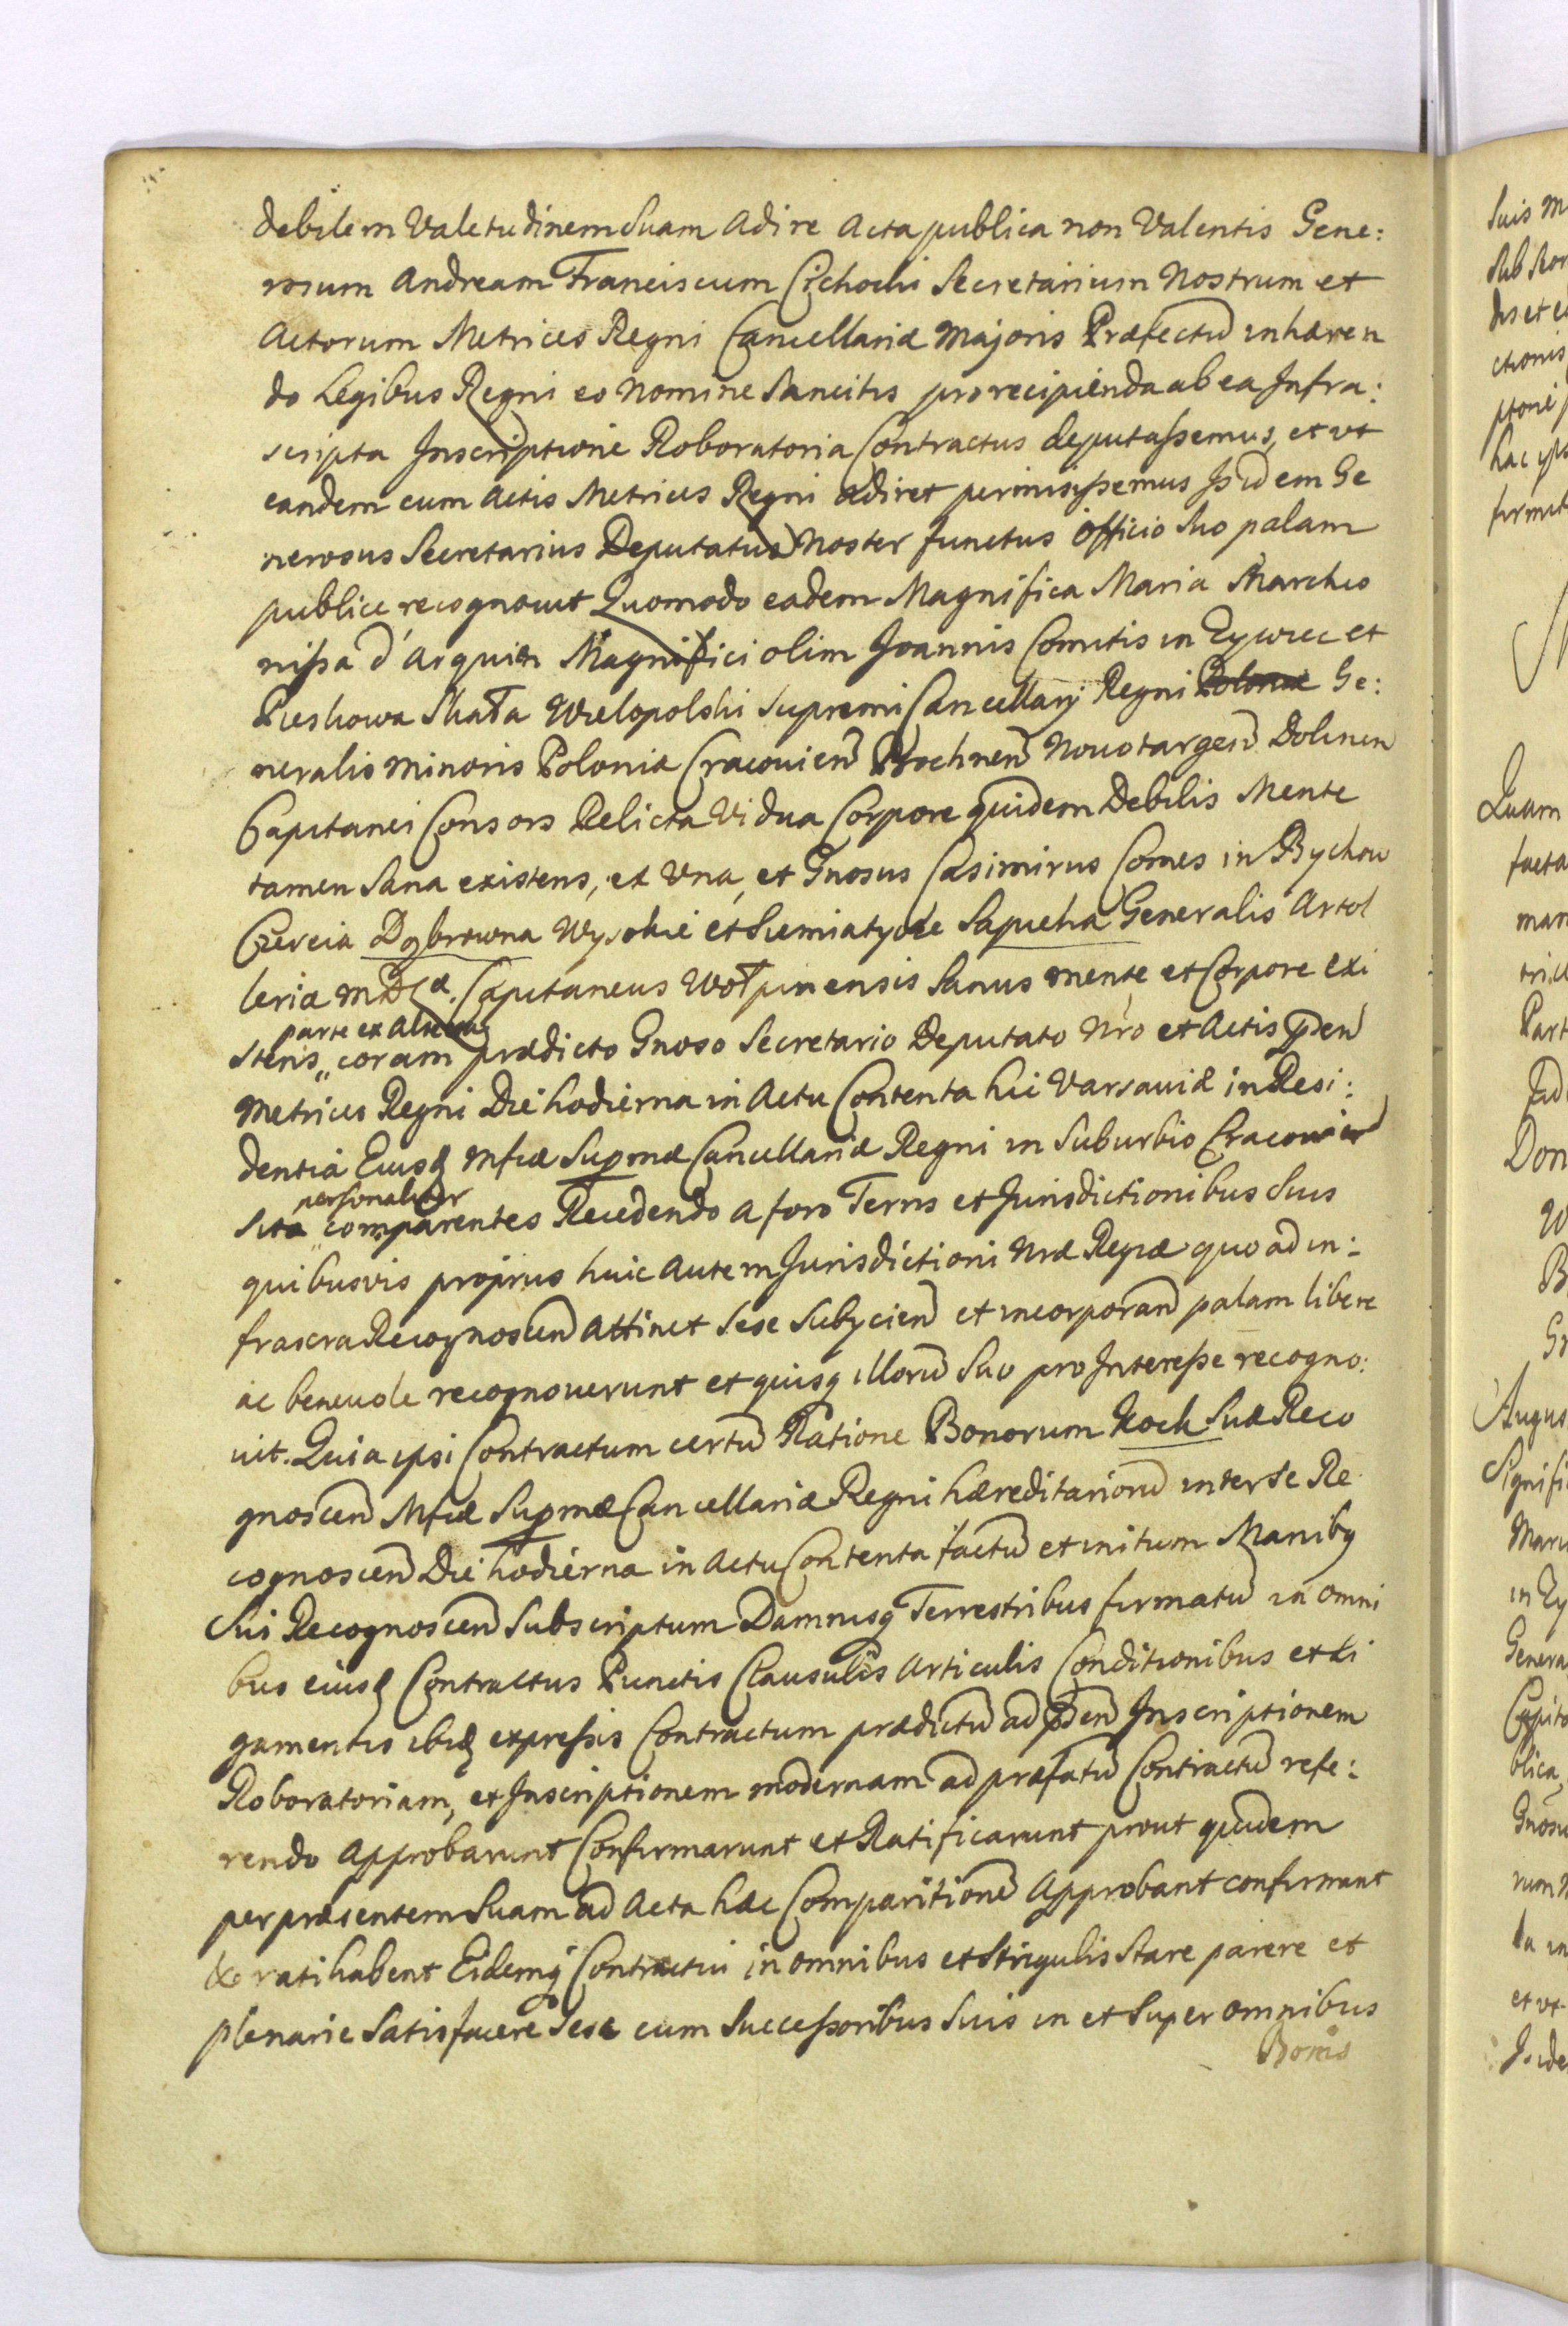 debilem Valetudinem Suam adire acta publica non Valentis Gene:
rosum Andream Franciscum Cichocki Secretarium Nostrum et
Actorum Metrices Regni Cancellariæ Majoris Præfectū inhæren
do Legibus Regni eo Nomine Sancitis pro recipienda ab ea Infra:
scripta Inscriptione Roboratoria Contractus deputassemus, et vt
eandem cum Actis Metrices Regni adiret permisissemus Isidem Ge
nerosus Secretarius Deputatus Noster functus officio suo palam
publice recognovit Quomodo eadem Magnifica Maria Marchio
nissa d'Arquien Magnifici olim Joannis Comitis in Zywiec et
Pieskowa Skała Wielopolski Supremi Cancellarij Regni Poloniæ Ge:
neralis Minoris Poloniæ Cracovien Bochnen Novotargen Dolinen
Capitanei Consors Relicta Vidua Corpore quidem Debilis Mente
tamen Sana existens, et Vna, et Gnosus Casimirus Comes in Bychow
Czereia Dąbrowna Wysokie et Siemiatycze Sapieha Generalis Artol
leriæ M D L Capitaneus Wołpinensis Sanus mente et Corpore exi
parte ex altera
stens,, coram prædicto Gnoso Secretario Deputato Nro et Actis pden
Metrices Regni Die hodierna in Actu Contenta hic Varsaviæ in Resi:
dentia Eiusd Mficæ Supmæ Cancellariæ Regni in Suburbio Cracovien
personaliter
Sita,, comparentes Recedendo a foro Terris et Jurisdictionibus Suis
quibusvis proprijs huic autem Jurisdictioni Nræ Regiæ quo ad in:
frascra Recognoscen attinet Sese Subijcien et incorporan palam libere
ac benevole recognoverunt et quisq illorū Suo pro Interesse recogno:
vit. Quia ipsi Contractum certū Ratione Bonorum Kock Suæ Reco
gnoscen Mficæ Supmæ Cancellariæ Regni hæreditariorū inter Se Re
cognoscen Die hodierna in Actu Contenta factū et initum Manibq
Sui Recognoscen Subscriptum Damnisq Terrestribus firmatū in omni
bus eiusd Contractus Punctis Clausulis Articulis Conditionibus et Li
gamentis ibid expressis Contractum prædictū ad pden Inscriptionem
Roboratoriam, et Inscriptionem modernam ad præfatū Contractū refe:
rendo Approbarunt Confirmarunt et Ratificarunt prout quidem
per præsentem Suam ad Acta hæc Comparitionē Approbant confirmant
& ratihabent Eidemq Contractui in omnibus et Singulis Stare parere et
plenarie Satisfacere Sese cum Successoribus Suis in et Super omnibus
Bonis
Suis
et
hac
Quam
facta
Part
Don
Augus
Signifi
in Zy
Genera
Capita
blica
et vt